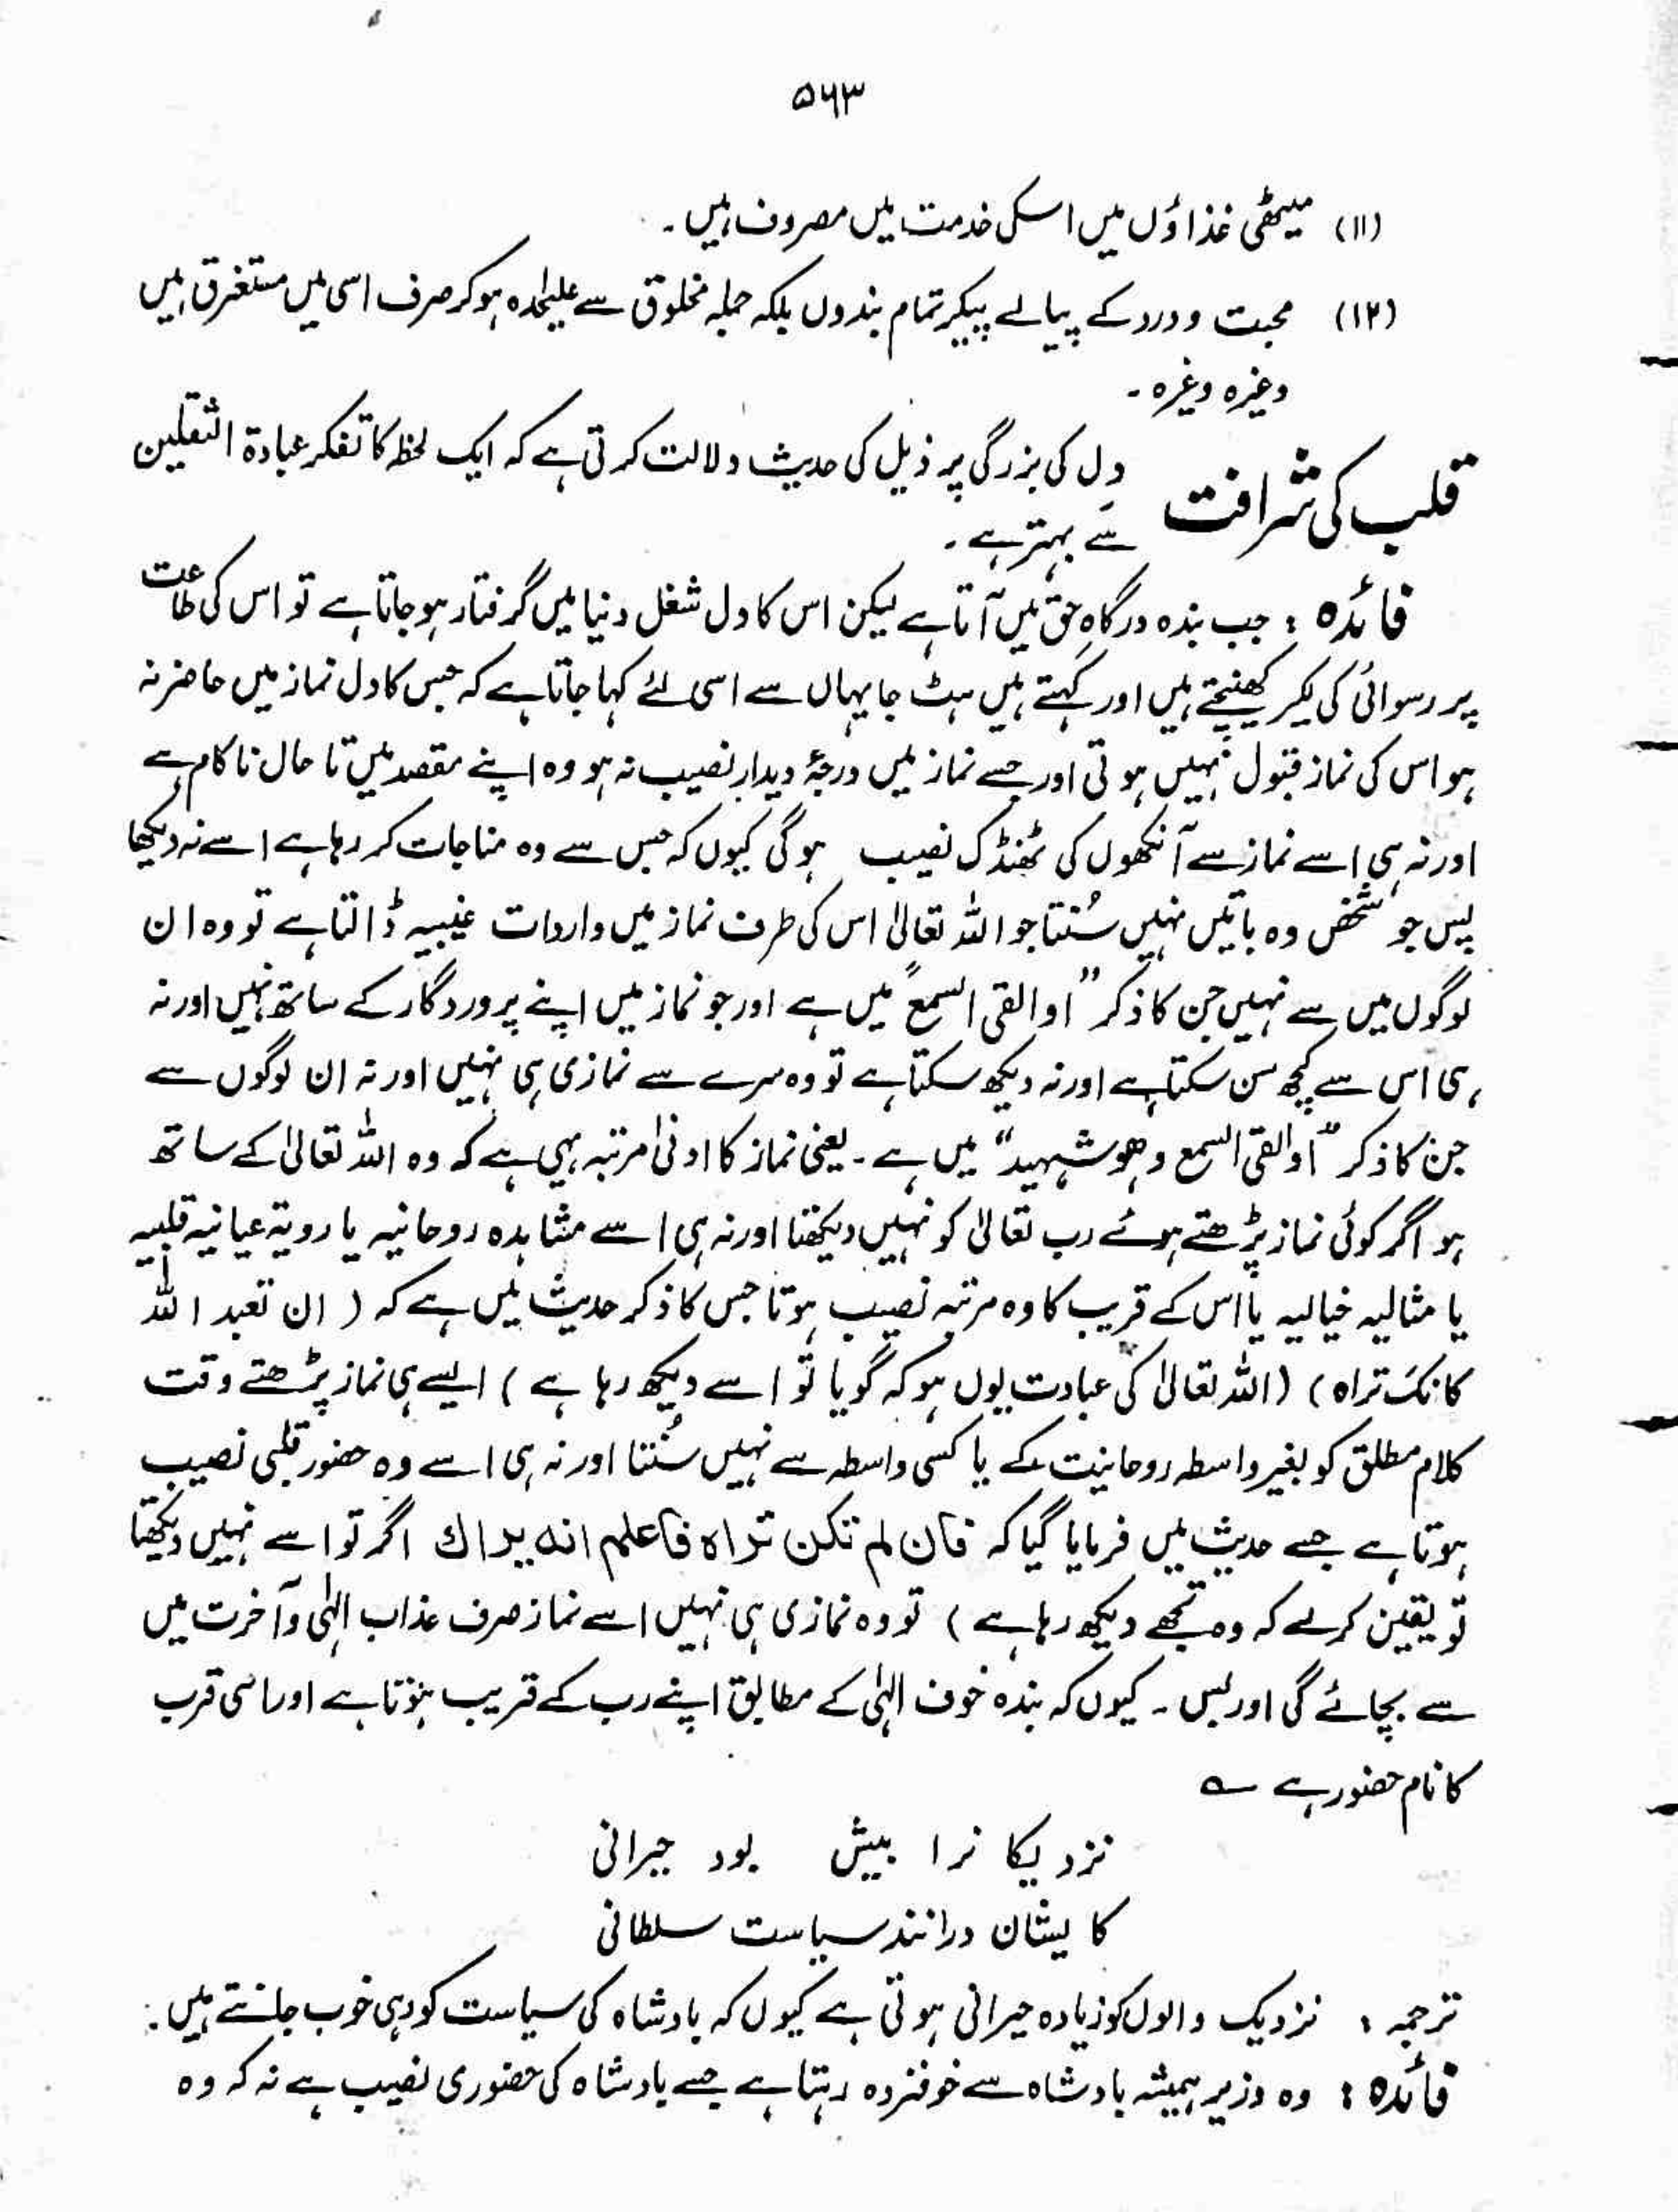 ۵۶۳
(۱۱) میٹھی غذاؤں میں اسکی خدمت میں مصروف ہیں۔
(۱۲) محبت و درد کے پیالے پیکر تمام بندوں بلکہ جملہ مخلوق سے علیٰحدہ ہو کر صرف اسی میں مستغرق ہیں
وغیرہ وغیرہ۔
قلب کی شرافت دل کی بزرگی پر ذیل کی حدیث دلالت کرتی ہے کہ ایک لحظہ کا تفکر عبادۃ الثقلین
سے بہتر ہے۔
فائدہ : جب بندہ درگاہِ حق میں آتا ہے لیکن اس کا دل شغل دنیا میں گرفتار ہو جاتا ہے تو اس کی طاعت
پر رسوائی کی لکیر کھینچتے ہیں اور کہتے ہیں ہٹ جا یہاں سے اسی لئے کہا جاتا ہے کہ جس کا دل نماز میں حاضر نہ
ہو اس کی نماز قبول نہیں ہوتی اور جسے نماز میں درجۂ دیدار نصیب نہ ہو وہ اپنے مقصد میں تا حال ناکام ہے
اور نہ ہی اسے نماز سے آنکھوں کی ٹھنڈک نصیب ہوگی کیوں کہ جس سے وہ مناجات کر رہا ہے اسے نہ دیکھا
پس جو شخص وہ باتیں نہیں سُنتا جو اللہ تعالیٰ اس کی طرف نماز میں واردات غیبیہ ڈالتا ہے تو وہ ان
لوگوں میں سے نہیں جن کا ذکر "او القی السمع" میں ہے اور جو نماز میں اپنے پروردگار کے ساتھ نہیں اور نہ
ہی اس سے کچھ سن سکتا ہے اور نہ دیکھ سکتا ہے تو وہ سرے سے نمازی ہی نہیں اور نہ ان لوگوں سے
جن کا ذکر "او القی السمع وھو شہید" میں ہے۔ یعنی نماز کا ادنیٰ مرتبہ یہی ہے کہ وہ اللہ تعالیٰ کے ساتھ
ہو اگر کوئی نماز پڑھتے ہوئے رب تعالیٰ کو نہیں دیکھتا اور نہ ہی اسے مشاہدہ روحانیہ یا رویۃ عیانیہ قلبیہ
یا مثالیہ خیالیہ یا اس کے قریب کا وہ مرتبہ نصیب ہوتا جس کا ذکر حدیث میں ہے کہ ( ان تعبد اللہ
کانکَ تراہ ) (اللہ تعالیٰ کی عبادت یوں ہو کہ گویا تو اسے دیکھ رہا ہے ) ایسے ہی نماز پڑھتے وقت
کلام مطلق کو بغیر واسطہ روحانیت کے یا کسی واسطہ سے نہیں سُنتا اور نہ ہی اسے وہ حضور قلبی نصیب
ہوتا ہے جسے حدیث میں فرمایا گیا کہ فان لم تکن تراہ فاعلم انہ یراك اگر تو اسے نہیں دیکھتا
تو یقین کر لے کہ وہ تجھے دیکھ رہا ہے ) تو وہ نمازی ہی نہیں اسے نماز صرف عذاب الہٰی و آخرت میں
سے بچائے گی اور بس۔ کیوں کہ بندہ خوف الہٰی کے مطابق اپنے رب کے قریب ہوتا ہے اور اسی قرب
کا نام حضور ہے ؎
نزدیکا نرا بیش بود حیرانی
کا یشان درانند سیاست سلطانی
ترجمہ : نزدیک والوں کو زیادہ حیرانی ہوتی ہے کیوں کہ بادشاہ کی سیاست کو وہی خوب جانتے ہیں۔
فائدہ : وہ وزیر ہمیشہ بادشاہ سے خوفزدہ رہتا ہے جسے بادشاہ کی حضوری نصیب ہے نہ کہ وہ